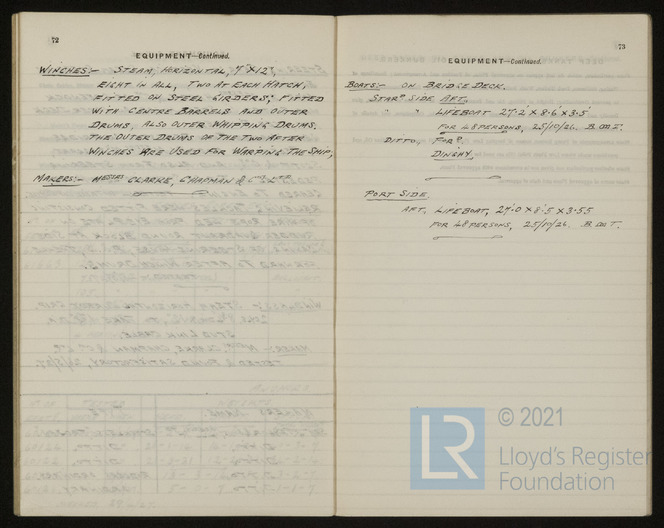 72
EQUIPMENT—Continued.
WINCHES:- STEAM, HORIZONTAL, 7"X12",
EIGHT IN ALL, TWO AT EACH HATCH,
FITTED ON STEEL GIRDERS; FITTED
WITH CENTRE BARRELS AND OUTER
DRUMS, ALSO OUTER WHIPPING DRUMS.
THE OUTER DRUMS OF THE TWO AFTER
WINCHES ARE USED FOR WARPING THE SHIP,
MAKERS:- MESSRS CLARKE, CHAPMAN & CO. LTD.
73
EQUIPMENT—Continued.
BOATS:- ON BRIDGE DECK.
STARD SIDE AFT,
" " LIFEBOAT 27.2 X 8.6 X 3.5
FOR 48 PERSONS, 25/10/26. B. OF T.
DITTO, FORD.
DINGHY,
PORT SIDE,
AFT, LIFEBOAT, 27.0 X 8.5 X 3.55
FOR 48 PERSONS, 25/10/26. B. OF T.
© 2021
LR
Lloyd's Register
Foundation